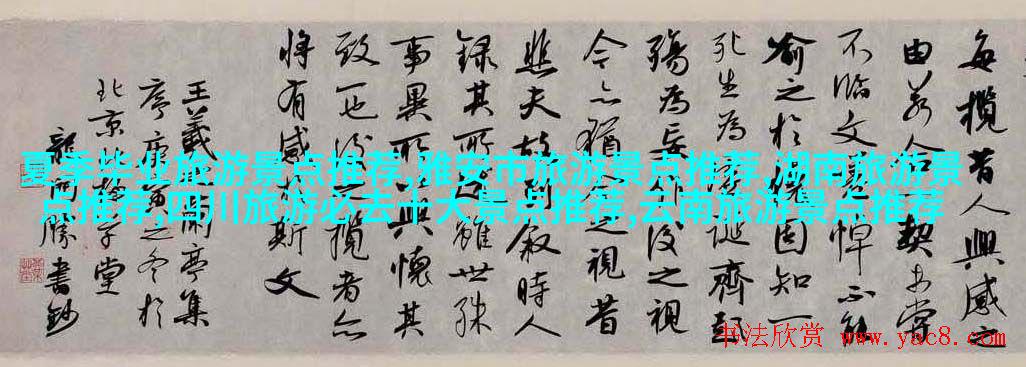 每攬昔人興感之
由若合一契未嘗
不臨文嗟悼不能
喻之於懷固知一
死生為虛誕齊彭
殤為妄作後之視
今亦猶今之視昔
悲夫故列敘時人
錄其所述雖世殊
事異所以興懷其
致一也後之攬者亦
將有感於斯文
王羲之蘭亭集
序庚寅之冬於
北京堂
龍開勝書鈔
夏季毕业旅游景点推荐,雅安市旅游景点推荐,湖南旅游景
点推荐,四川旅游必去十大景点推荐,云南旅游景点推荐
书法欣赏 www.yac8.com